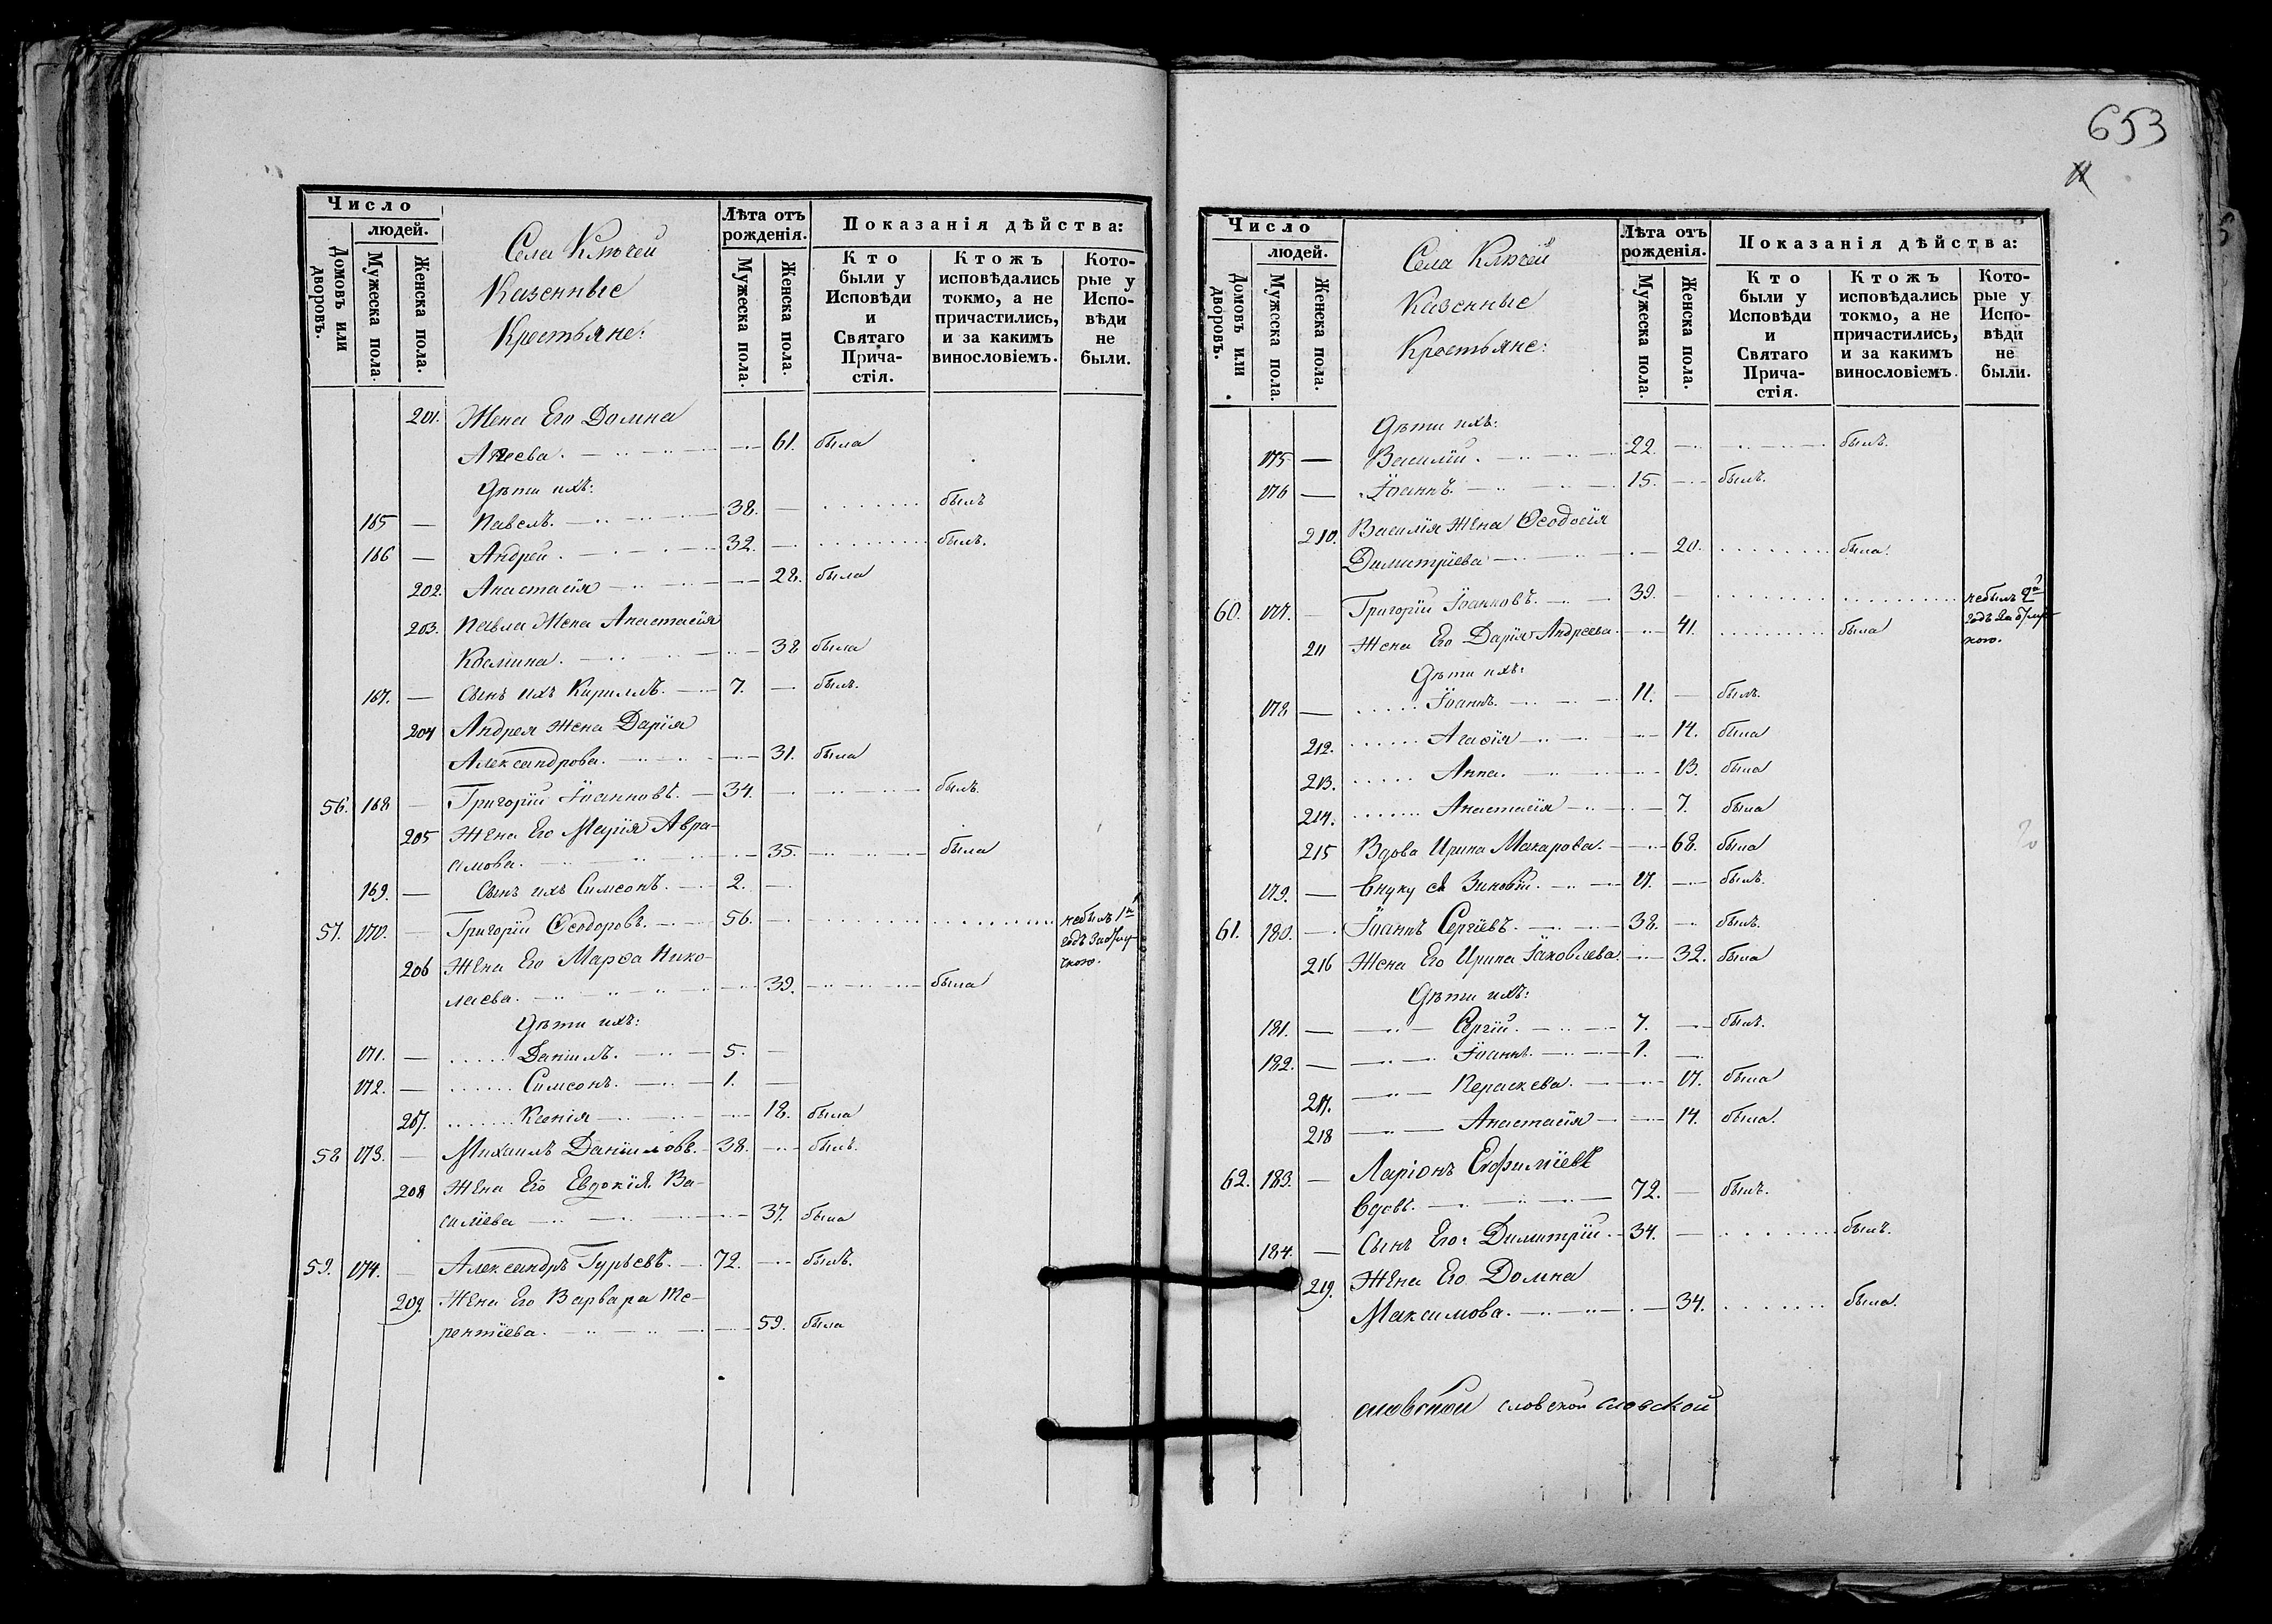 653
Число
людей.
Домовъ или дворовъ.
Мужеска пола.
Женска пола.
Села Ключей
Казенные
Крестьяне:
Лѣта отъ рожденія.
Мужеска пола.
Женска пола.
Показанія дѣйства:
Кто были у Исповѣди и Святаго Прича-стія.
Ктожъ исповѣдались токмо, а не причастились, и за какимъ винословіемъ.
Кото-рые у Испо-вѣди не были.
201. Жена Его Домна
61. была
Дѣти ихъ:
165 — Павелъ. 38. — былъ
166 — Андрей. 32. — былъ.
202. Анастасія 28. была
203. Павла Жена Анастасія
Козмина. 38 была
167. — Сынъ ихъ Кириллъ. 7. — былъ.
204 Андрея Жена Дарія
Александрова. 31. была
56. 168 — Григорій Іоанновъ. 34. — былъ.
205 Жена Его Марія Авра-
амова. 35. была
169. — Сынъ ихъ Симеонъ. 2. —
57. 170. — Григорій Ѳеодоровъ. 56. — небылъ 1й
годъ за отлу-
206 Жена Его Марѳа Нико-
лаева. 39. была
Дѣти ихъ:
171. — Даніилъ. 5. —
172. — Симеонъ. 1. —
207. Ксенія 18. была
58 173. — Михаилъ Данииловъ. 38. былъ.
208 Жена Его Евдокія Ва-
силіева 37. была
59. 174. — Александръ Гурьевъ. 72. былъ.
209. Жена Его Варвара Те-
рентіева. 59. была
Число
людей.
Домовъ или дворовъ.
Мужеска пола.
Женска пола.
Села Ключей
Казенные
Крестьяне:
Лѣта отъ рожденія.
Мужеска пола.
Женска пола.
Показанія дѣйства:
Кто были у Исповѣди и Святаго Прича-стія.
Ктожъ исповѣдались токмо, а не причастились, и за какимъ винословіемъ
Кото-рые у Испо-вѣди не были.
Дѣти ихъ:
175 — Василій. 22. — былъ.
176 — Іоаннъ. 15. былъ.
210. Василія Жена Ѳеодосія
Димитріева 20. была.
60. 177. — Григорій Іоанновъ. 39. — небылъ 2й
годъ за отлу-
211 Жена Его Дарія Андреева. 41. была
Дѣти ихъ:
178 — Іоаннъ. 11. — былъ.
212. Агаѳія 14. была
213. Анна. 13. была
214. Анастасія 7. была
215 Вдова Ирина Макарова. 68. была
179. — Внукъ ея Зиновій. 17. былъ.
61. 180. — Іоаннъ Сергіевъ. 38. былъ.
216 Жена Его Ирина Іаковлева. 32. была
Дѣти ихъ:
181. — Сергій. 7. былъ.
182. — Іоаннъ. 1.
217. Параскева. 17. была
218 Анастасія 14. была.
62. 183. — Ларіонъ Евфиміевъ
Вдовъ. 72. — былъ.
184. — Сынъ Его: Димитрій. 34. — былъ.
219. Жена Его Домна
Максимова. 34. была.
словской словской